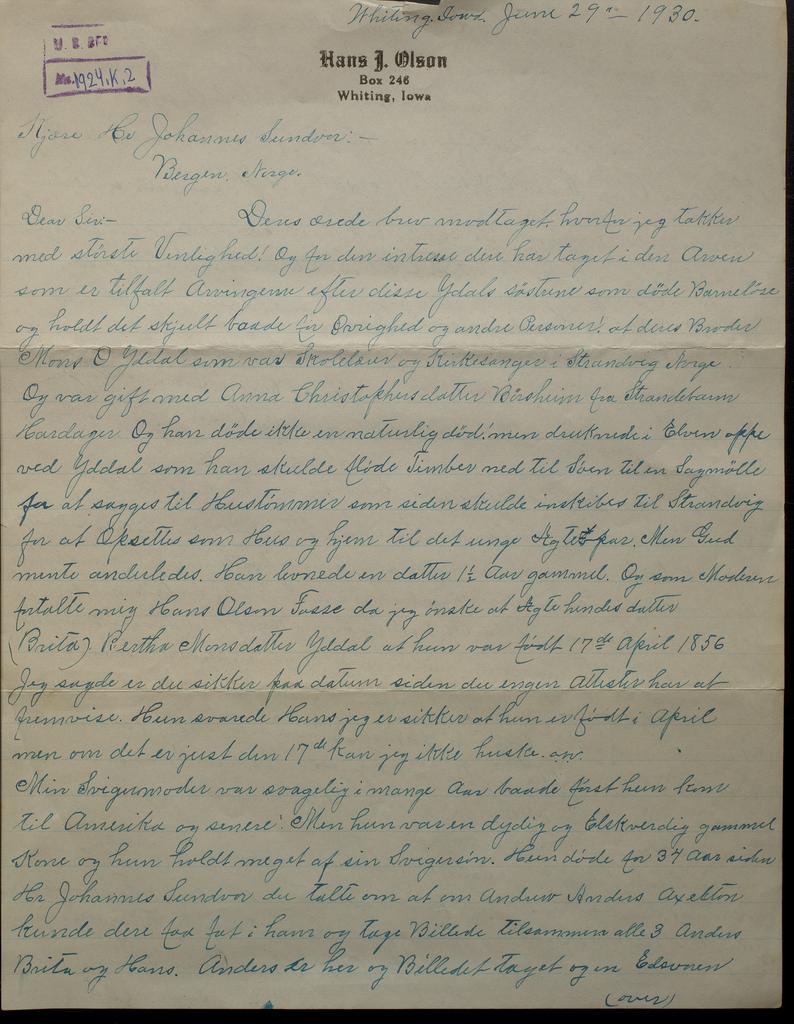 Whiting. Iowa. June 29n – 1930.
U. B. BFG
Ms. 1924.K.2
Hans J. Olson
Box 246
Whiting, Iowa
Kjære Hr Johannes Sundvor:–
Bergen. Norge.
Dear Sir:– Deres ærede brev modtaget. hvorfor jeg takker
med störste Venlighed! Og for den intresse dere har taget i den Arven
som er tilfalt Arvingerne efter disse Ydals söstrene som döde Barnelöse
og holdt det skjult baade for Övrighed og andre Personer! at deres Broder
Mons O Yddal som var Skolelærer og Kirkesanger i Strandvig Norge.
Og var gift med Anna Christophersdatter Börsheim fra Strandebarm
Hardager. Og han döde ikke en naturlig död! men druknede i Elven oppe
ved Yddal som han skulde flöde Timber ned til Söen til en Sagmölle
for at sagges til Hustömmer som siden skulde inskibes til Strandvig
for at Opsettes som Hus og hjem til det unge Ægtepar. Men Gud
mente anderledes. Han levnede en datter 1½ Aar gammel. Og som Moderen
fortalte mig Hans Olson Fosse da jeg önske at Ægte hendes datter
(Brita) Bertha Monsdatter Yddal at hun var födt 17de April 1856
Jeg sagde er du sikker paa datum siden du engen Attester har at
fremvise. Hun svarede Hans jeg er sikker at hun er födt i April
men om det er just den 17de kan jeg ikke huske.
Min Svigermoder var svagelig i mange Aar baade först hun kom
til Amerika og senere! Men hun var en dydig og Elskverdig gammel
Kone og hun holdt meget af sin Svigersön. Hun döde for 34 Aar siden
Hr Johannes Sundvor du talte om at om Andrew Anders Axelton
kunde dere faa fat i ham og tage Billede tilsammen alle 3 Anders
Brita og Hans. Anders er her og Billedet taget og en Edsvoren
(over)